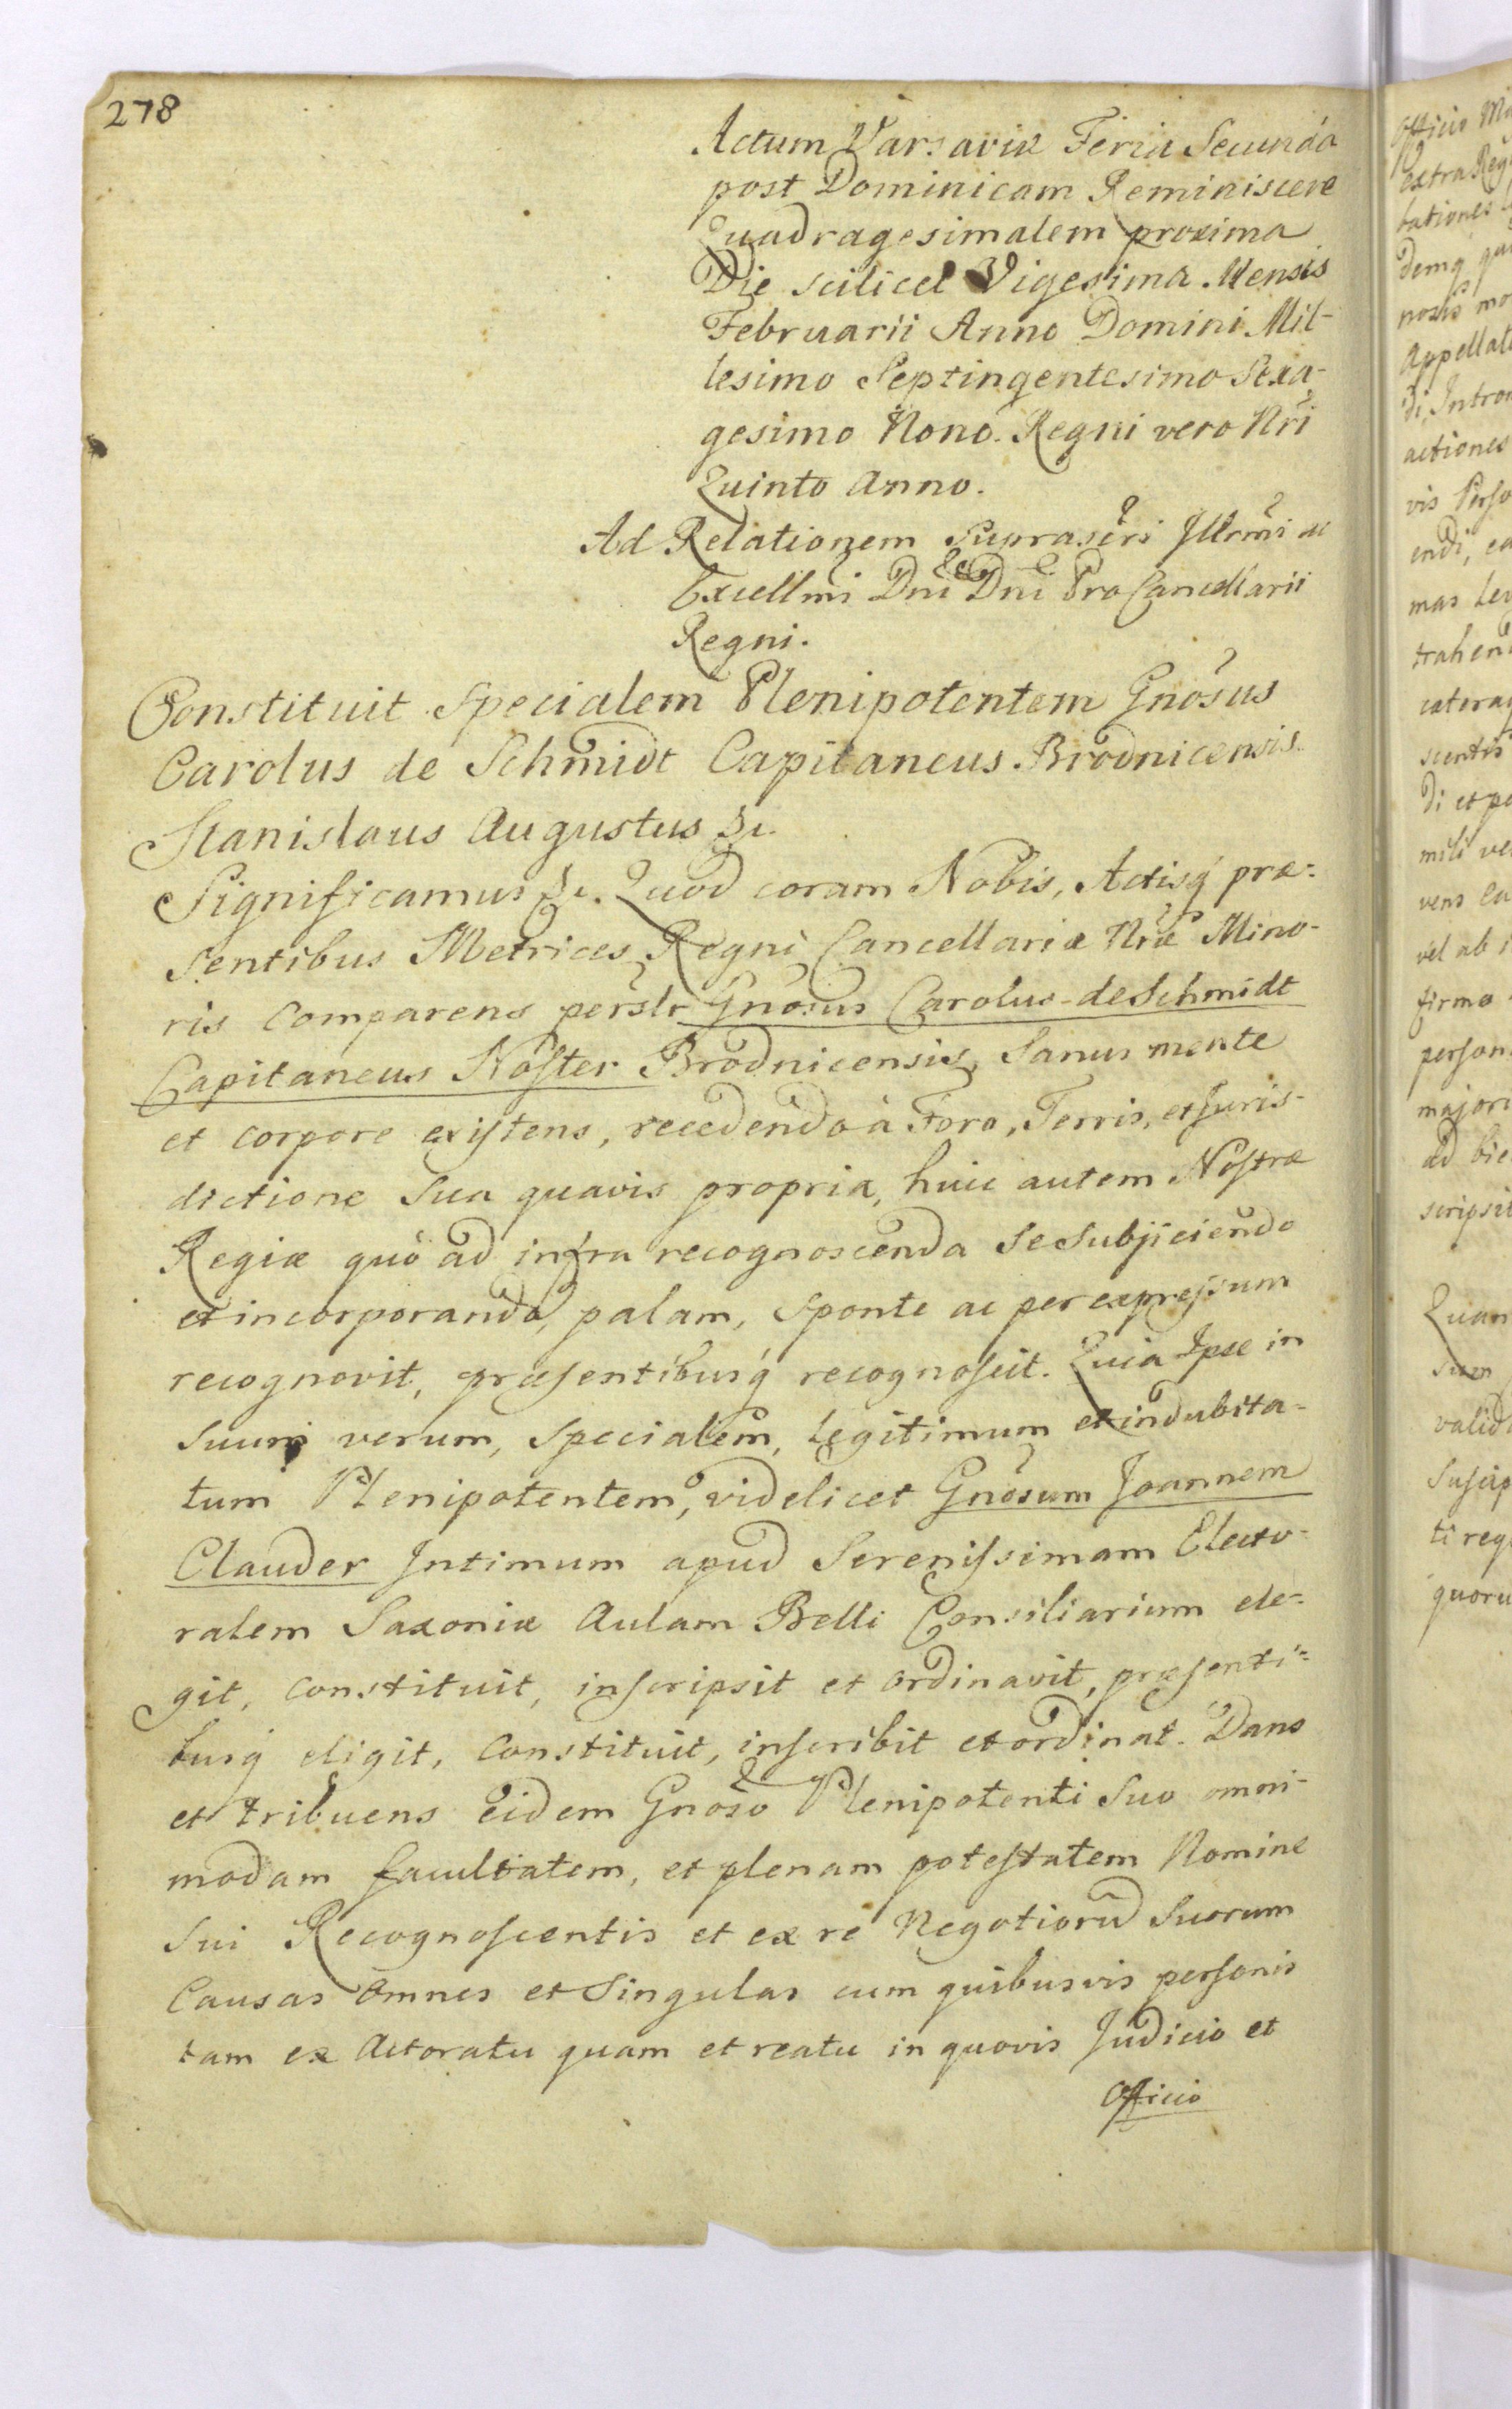 278
Actum Varsaviæ Feria Secunda
post Dominicam Reminiscere
Quadragesimalem proxima
Die scilicet Vigesima Mensis
Februarii Anno Domini Mil-
lesimo Septingentesimo Sexa-
gesimo Nono. Regni vero Nri
Quinto Anno.
Ad Relationem suprascri Illrmi ac
Excellmi Dni Dni Pro Cancellarii
Regni.
Constituit Specialem Plenipotentem Gnosus
Carolus de Schmidt Capitaneus Brodnicensis.
Stanislaus Augustus &c.
Significamus &c. Quod coram Nobis, Actisq præ-
sentibus Metrices Regni Cancellariæ Nræ Mino-
ris Comparens perslr Gnosus Carolus de Schmidt
Capitaneus Noster Brodnicensis, Sanus mente
et corpore existens, recedendo à Foro, Terris, et Juris-
dictione Sua quavis propria, huic autem Nostræ
Regiæ quò ad infra recognoscenda Se Subjiciendo
et incorporando, palam, Sponte ac per expressum
recognovit, præsentibusq recognoscit. Quia Ipse in
Suum verum, Specialem, Legitimum et indubita-
tum Plenipotentem, videlicet Gnosum Joannem
Clauder Intimum apud Serenissimam Electo-
ralem Saxoniæ Aulam Belli Consiliarium ele-
git, constituit, inscripsit et ordinavit, præsenti-
busq eligit, Constituit, inscribit et ordinat. Dans
et tribuens eidem Gnoso Plenipotenti Suo omni-
modam facultatem, et plenam potestatem Nomine
Sui Recognoscentis et ex re Negotiorũ Suorum
Causas omnes et Singulas cum quibusvis personis
tam ex Actoratu quam et reatu in quovis Judicio et
Officio